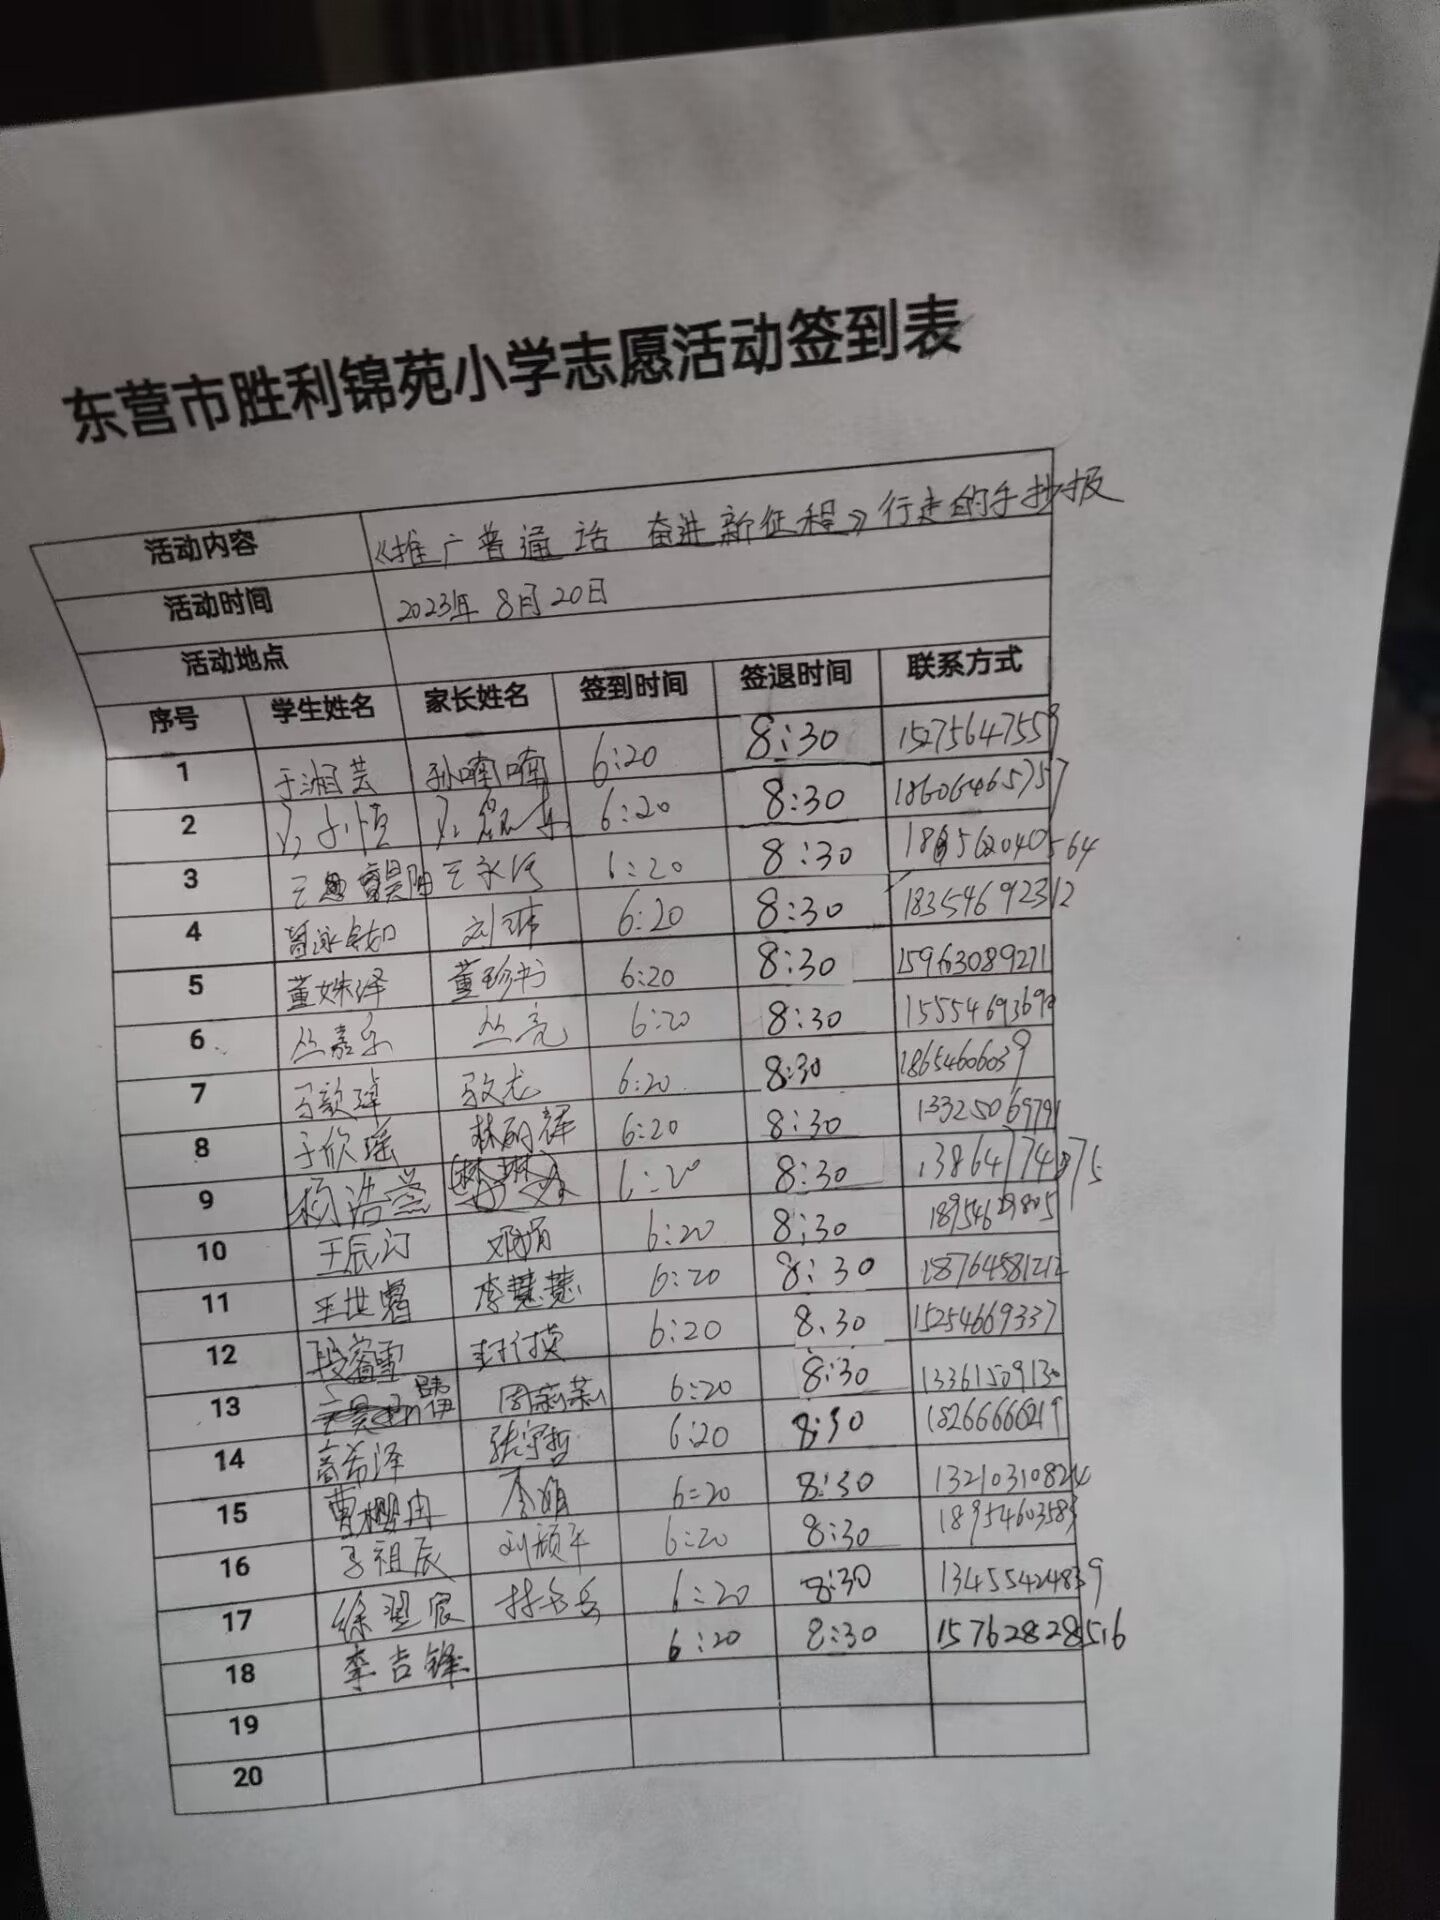 东营市胜利锦苑小学志愿活动签到表
活动内容 《推广普通话 奋进新征程》行走的手抄报
活动时间 2023年8月20日
活动地点
序号 学生姓名 家长姓名 签到时间 签退时间 联系方式
1 于湘芸 孙喃喃 6:20 8:30 1527564755
2 6:20 8:30 18606465757
3 王永河 6:20 8:30
4 刘琳 6:20 8:30 18354692312
5 董姝泽 董珍书 6:20 8:30 15963089271
6 丛嘉乐 丛亮 6:20 8:30
7 马歆焯 6:20 8:30 18654606039
8 于欣瑶 6:20 8:30 13325069791
9 杨浩 6:20 8:30
10 王辰汀 邓娟 6:20 8:30
11 李慧慧 6:20 8:30 18764581212
12 段睿雪 6:20 8:30 15254669337
13 周莉莉 6:20 8:30 13361509130
14 高希泽 张守哲 6:20 8:30 18266666219
15 曹樱冉 李娟 6:20 8:30
16 刘颖平 6:20 8:30 18954603583
17 徐翌宸 6:20 8:30
18 李吉锋 6:20 8:30 15762828516
19
20